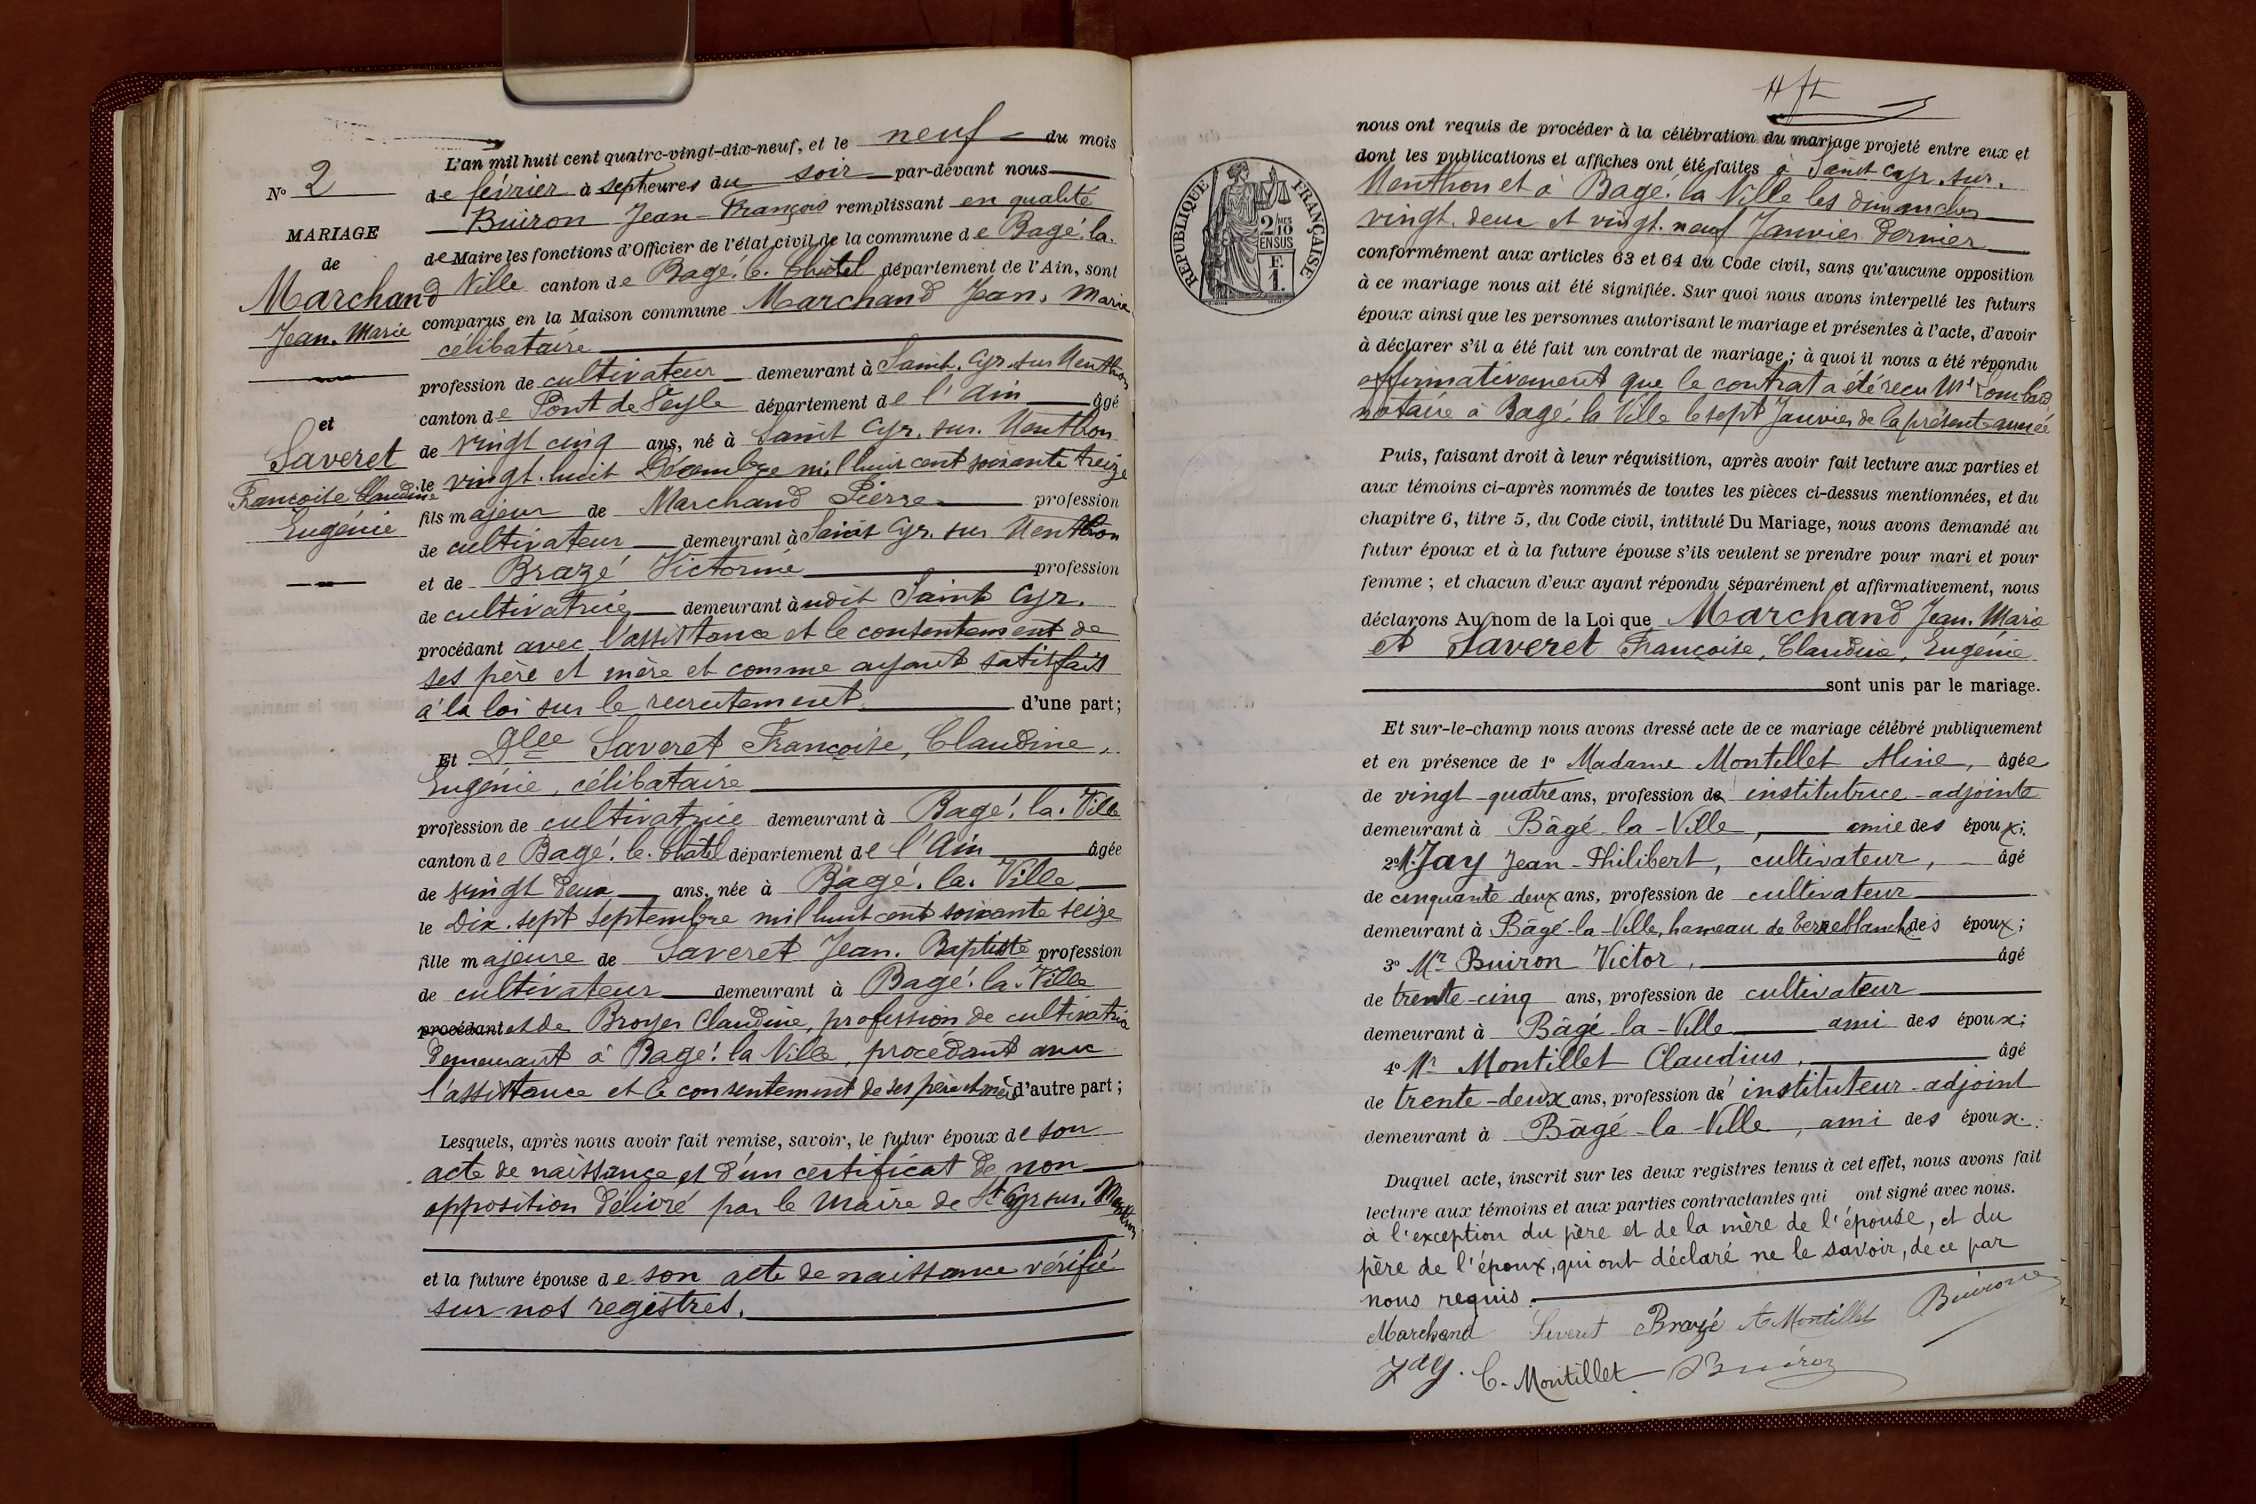 N° 2
MARIAGE
de
Marchand
Jean. Marie
et
Saveret
Francoise Claudine
Eugénie
L'an mil huit cent quatre-vingt-dix-neuf, et le neuf du mois
de février à sept heures du soir par-devant nous
Buiron Jean-François remplissant en qualité
de Maire les fonctions d'Officier de l'état civil de la commune de Bagé. la.
Ville canton de Bagé. le. Châtel département de l'Ain, sont
comparus en la Maison commune Marchand Jean. Marie
célibataire
profession de cultivateur demeurant à Saint. Cyr. sur Menthon
canton de Pont de Veyle département de l'Ain âgé
de vingt cinq ans, né à Saint Cyr. sur. Menthon
le vingt. huit Décembre mil huit cent soixante treize
fils majeur de Marchand Pierre profession
de cultivateur demeurant à Saint Cyr. sur Menthon
et de Brazé Victorine profession
de cultivatrice demeurant audit Saint Cyr.
procédant avec l'assistance et le consentement de
ses père et mère et comme ayant satisfait
à la loi sur le recrutement d'une part;
Et Dlle Saveret Françoise, Claudine,
Eugénie, célibataire
profession de cultivatrice demeurant à Bagé. la. Ville
canton de Bagé. le. Châtel département de l'Ain âgée
de vingt deux ans, née à Bâgé. la. Ville
le Dix. sept septembre mil huit cent soixante seize
fille majeure de Saveret Jean. Baptiste profession
de cultivateur demeurant à Bagé. la. Ville
procédant et de Broyer Claudine, profession de cultivatrice
demeurant à Bagé. la Ville, procédant avec
l'assistance et le consentement de ses père et mère d'autre part;
Lesquels, après nous avoir fait remise, savoir, le futur époux de son
acte de naissance et d'un certificat de non
opposition délivré par le Maire de St Cyr sur. Menthon
et la future épouse de son acte de naissance vérifié
sur nos registres.
RÉPUBLIQUE FRANÇAISE
2/10
EN SUS
F.
1.
nous ont requis de procéder à la célébration du mariage projeté entre eux et
dont les publications et affiches ont été faites à Saint Cyr. sur.
Menthon et à Bagé. la Ville les dimanches
vingt. deux et vingt. neuf Janvier dernier
conformément aux articles 63 et 64 du Code civil, sans qu'aucune opposition
à ce mariage nous ait été signifiée. Sur quoi nous avons interpellé les futurs
époux ainsi que les personnes autorisant le mariage et présentes à l'acte, d'avoir
à déclarer s'il a été fait un contrat de mariage; à quoi il nous a été répondu
affirmativement que le contrat a été reçu Me Lombard
notaire à Bagé. la Ville le sept Janvier de la présente année
Puis, faisant droit à leur réquisition, après avoir fait lecture aux parties et
aux témoins ci-après nommés de toutes les pièces ci-dessus mentionnées, et du
chapitre 6, titre 5, du Code civil, intitulé Du Mariage, nous avons demandé au
futur époux et à la future épouse s'ils veulent se prendre pour mari et pour
femme; et chacun d'eux ayant répondu séparément et affirmativement, nous
déclarons Au nom de la Loi que Marchand Jean. Marie
et Saveret Françoise, Claudine, Eugénie
sont unis par le mariage.
Et sur-le-champ nous avons dressé acte de ce mariage célébré publiquement
et en présence de 1° Madame Montillet Aline, âgée
de vingt-quatre ans, profession de institutrice-adjointe
demeurant à Bâgé-la-Ville, amie des époux;
2° M. Jay Jean-Philibert, cultivateur, âgé
de cinquante deux ans, profession de cultivateur
demeurant à Bâgé-la-Ville, hameau de Terreblanche des époux;
3° Mr Buiron Victor, âgé
de trente-cinq ans, profession de cultivateur
demeurant à Bâgé-la-Ville ami des époux;
4° Mr Montillet Claudius, âgé
de trente-deux ans, profession de instituteur-adjoint
demeurant à Bâgé-la-Ville, ami des époux.
Duquel acte, inscrit sur les deux registres tenus à cet effet, nous avons fait
lecture aux témoins et aux parties contractantes qui ont signé avec nous.
à l'exception du père et de la mère de l'épouse, et du
père de l'époux, qui ont déclaré ne le savoir, de ce par
nous requis.
Marchand Saveret Brazé A Montillet Buiron
Jay. C. Montillet Buiron